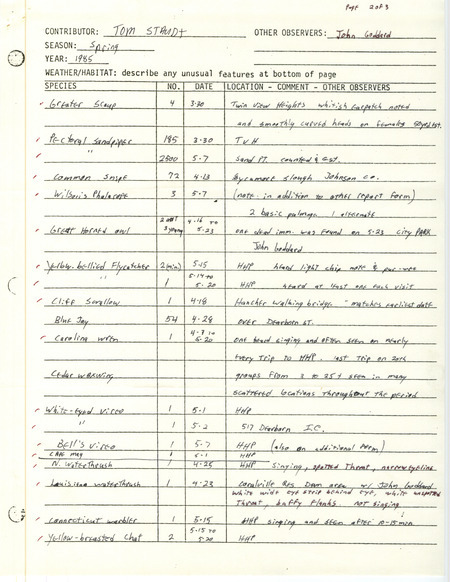 Page 2 of 3
CONTRIBUTOR: TOM STAUDT OTHER OBSERVERS: John Goddard
SEASON: Spring
YEAR: 1985
WEATHER/HABITAT: describe any unusual features at bottom of page
SPECIES NO. DATE LOCATION - COMMENT - OTHER OBSERVERS
Greater Scaup 4 3-30 Twin View Heights whitish earpatch noted
and smoothly curved heads on females
Pectoral Sandpiper 185 3-30 TVH
" 2500 5-7 Sand PT. counted & est.
Common Snipe 72 4-13 Sycamore Slough Johnson Co.
Wilson's Phalarope 3 5-7 (note: in addition to other report form)
2 basic plumage 1 alternate
Great Horned owl 2 adult 3 young 4-16 to 5-23 one dead imm. was found on 5-23 City PARK
John Goddard
Yellow-bellied Flycatcher 2(min) 5-15 HHP heard light chip note & per-wee
" 1 5-14 to 5-20 HHP heard at least one each visit
Cliff Swallow 1 4-18 Hancher Walking bridge. "matches earliest date
Blue Jay 54 4-28 over Dearborn ST.
Carolina wren 1 4-7 to 5-20 one heard singing and often seen on nearly
every Trip to HHP. last Trip on
Cedar waxwing groups from 2 to 25+ seen in many
scattered locations throughout the period
White-eyed vireo 1 5-1 HHP
" 1 5-2 517 Dearborn I.C.
Bell's vireo 1 5-7 HHP (also on additional form)
CAPE May 1 5-1 HHP
N. Waterthrush 1 4-25 HHP singing, spotted throat, narrow eyeline
Louisiana waterthrush 1 4-23 Coralville Res Dam area w/ John Goddard
white wide eye strip behind eye, white unspotted
Throat, buffy flanks not singing
Connecticut warbler 1 5-15 HHP singing and seen after 10-15 min
Yellow-breasted Chat 2 5-15 to 5-20 HHP